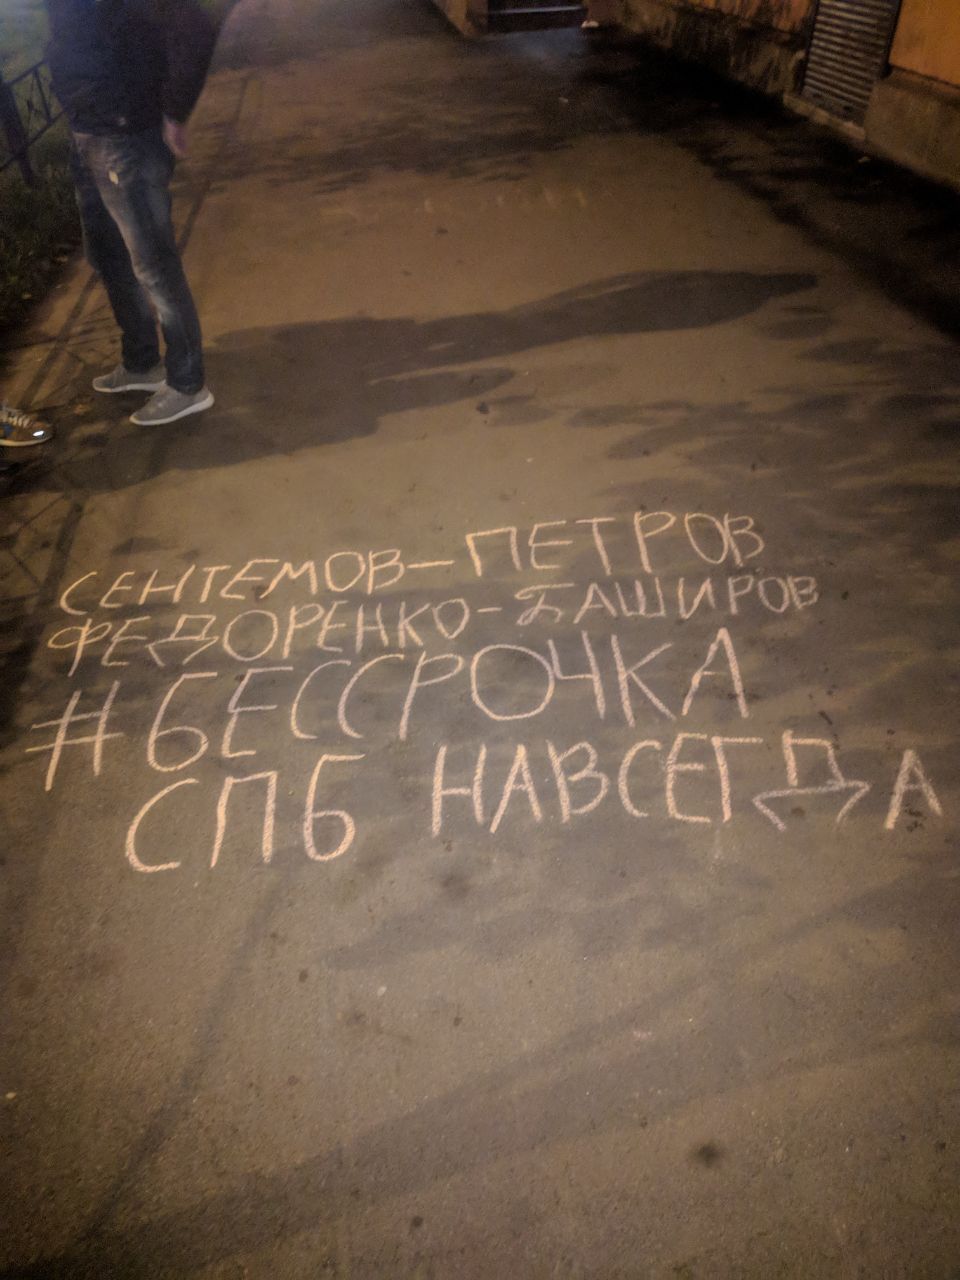 СЕНТЕМОВ–ПЕТРОВ
ФЕДОРЕНКО-БАШИРОВ
#БЕССРОЧКА
СПБ НАВСЕГДА